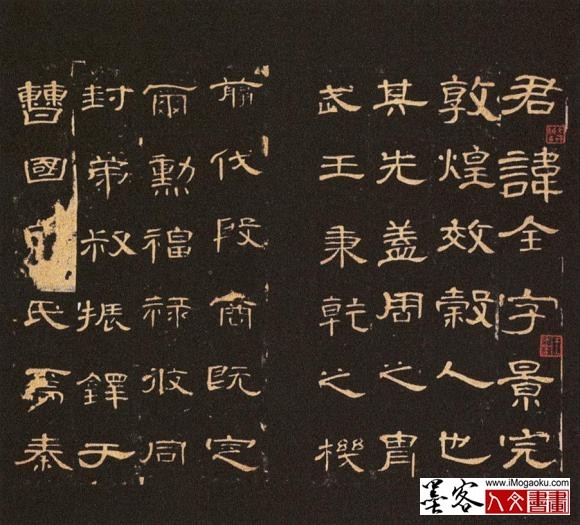 君諱全字景完
敦煌效穀人也
其先蓋周之胄
武王秉乾之機
翦伐殷商既定
爾勳福祿攸同
封弟叔振鐸于
曹國氏焉秦
墨客
www.iMogaoku.com
人文書畫